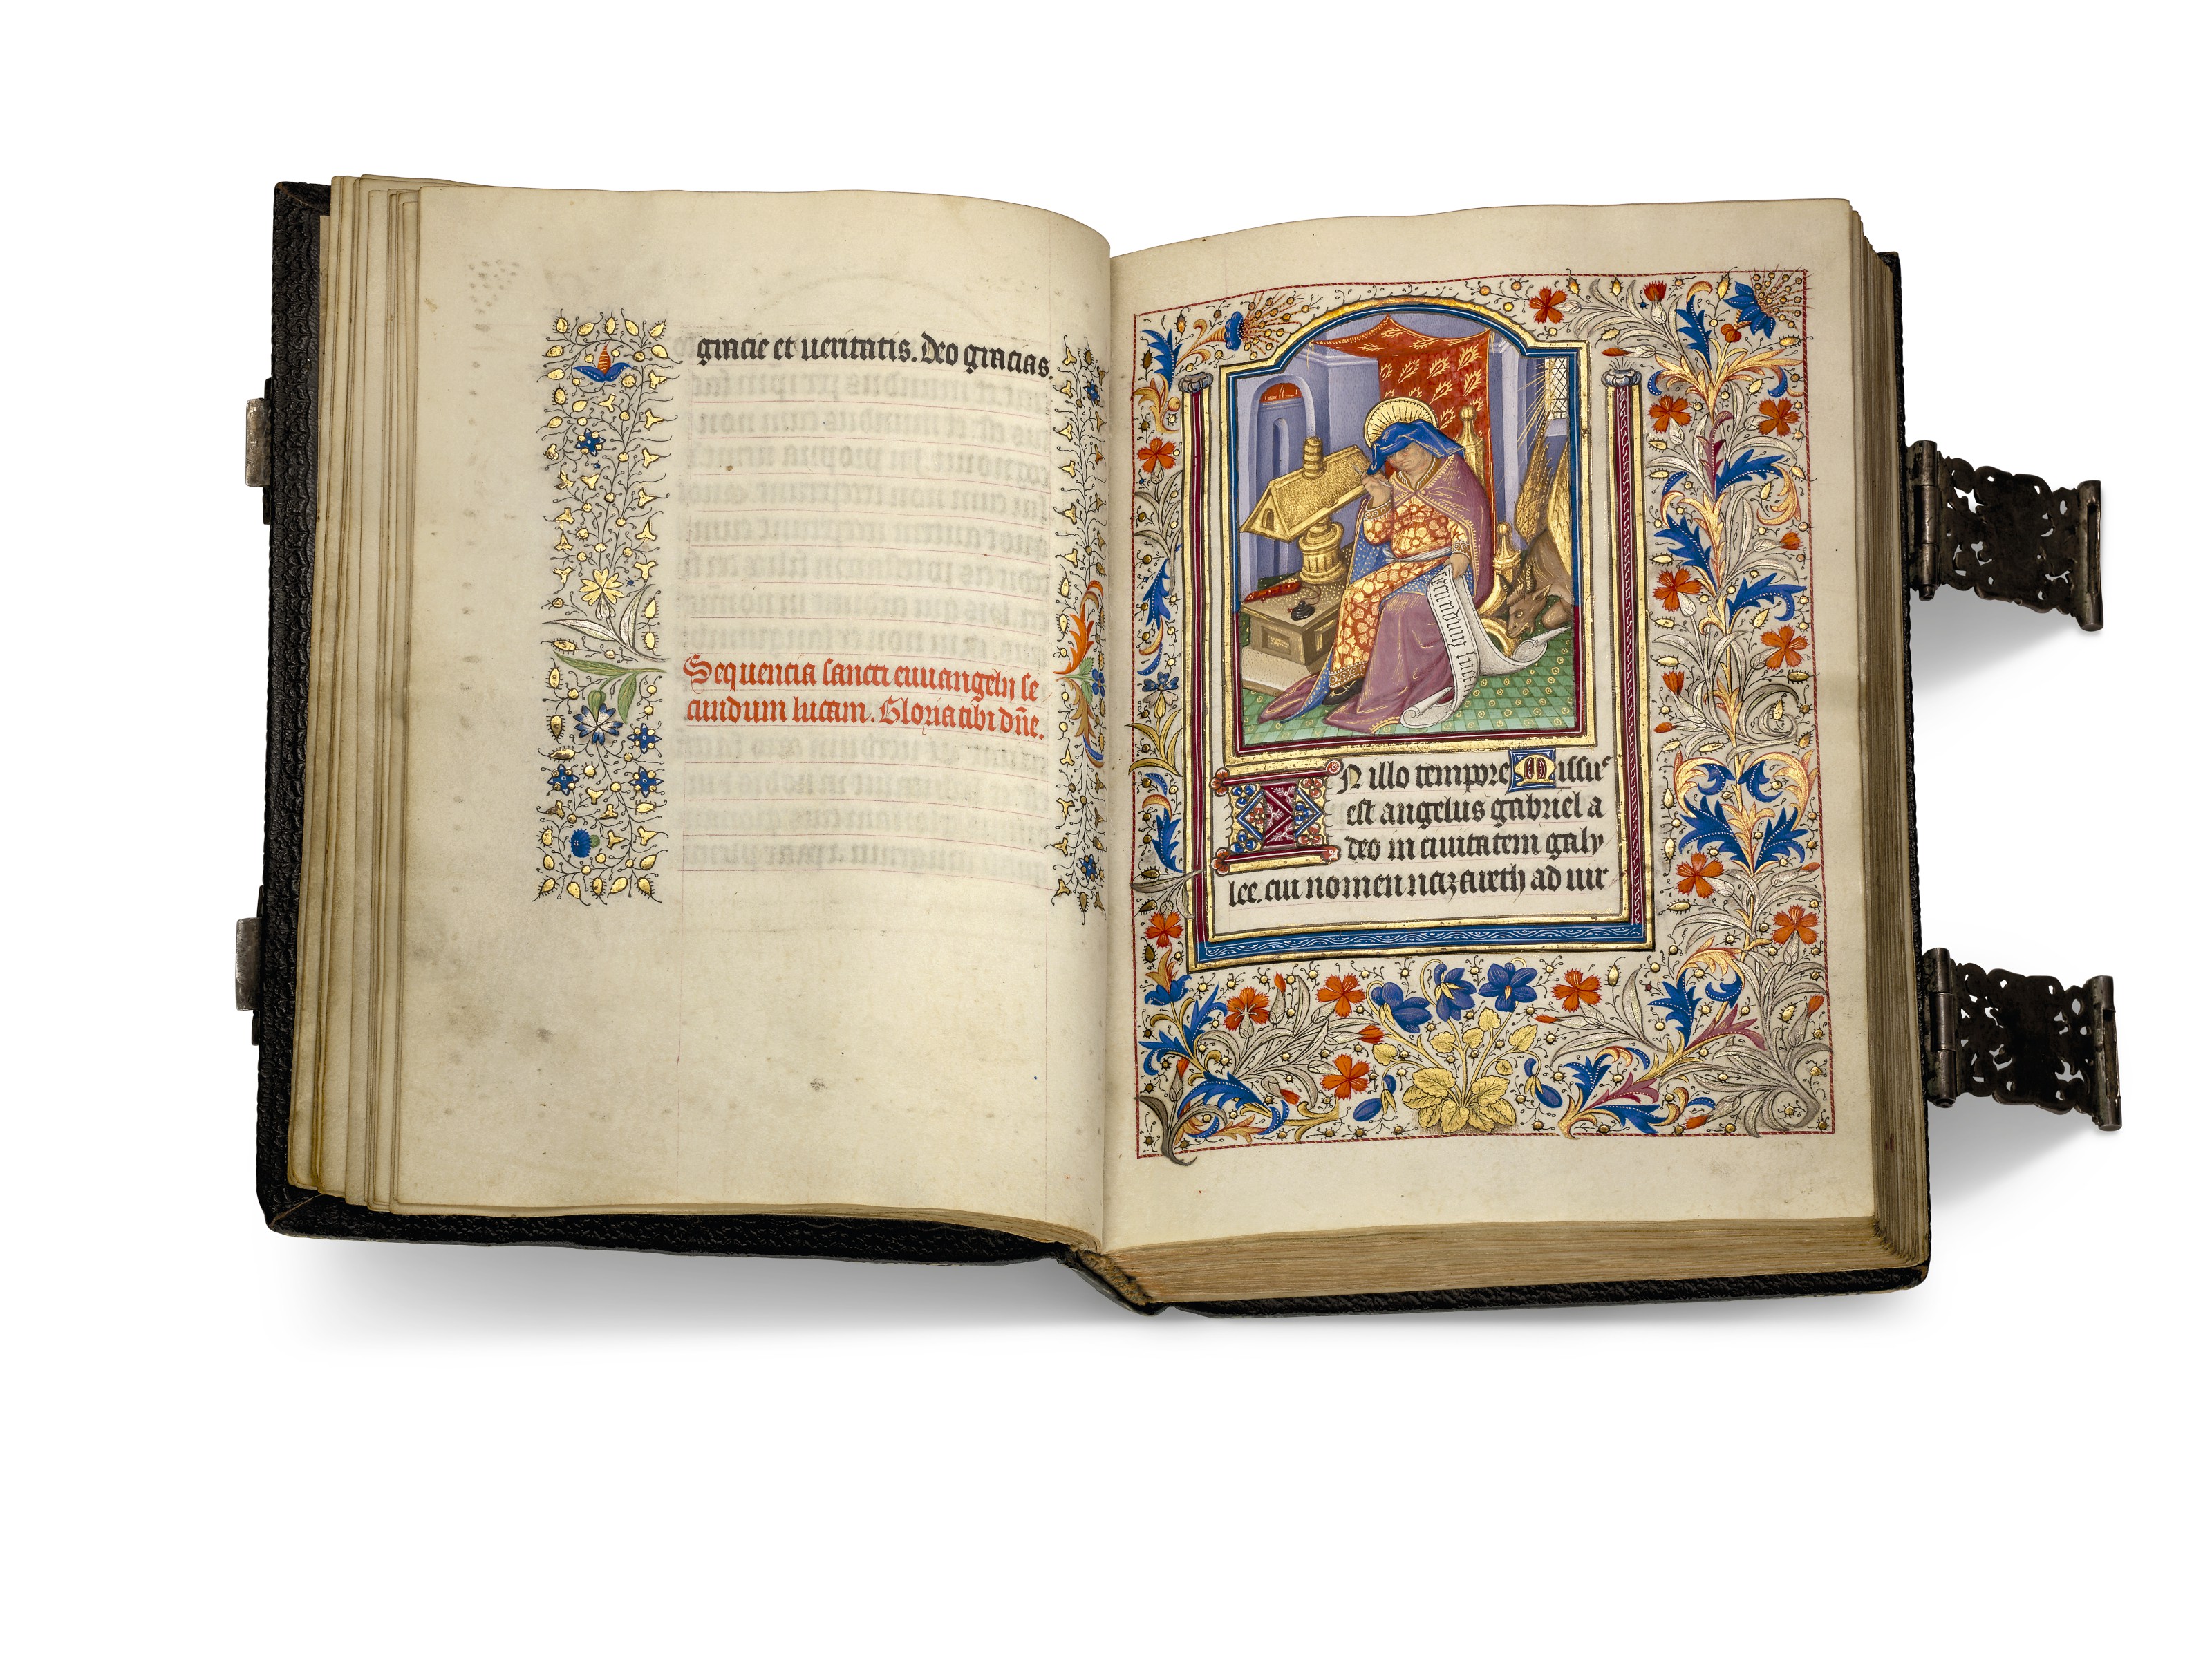 gracie et ueritatis. Deo gracias.
Sequencia sancti euuangelij se
cundum lucam. Gloria tibi dñe.
secundum luc
IN illo tempore Missus
est angelus gabriel a
deo in ciuitatem galy
lee. cui nomen nazareth ad uir